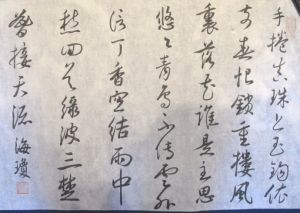 手捲真珠上玉鈎依
前春恨鎖重樓風
裏落花誰是主思
悠々青鳥不傳雲外
信丁香空結雨中
愁回首綠波三楚
暮接天流 海瓊